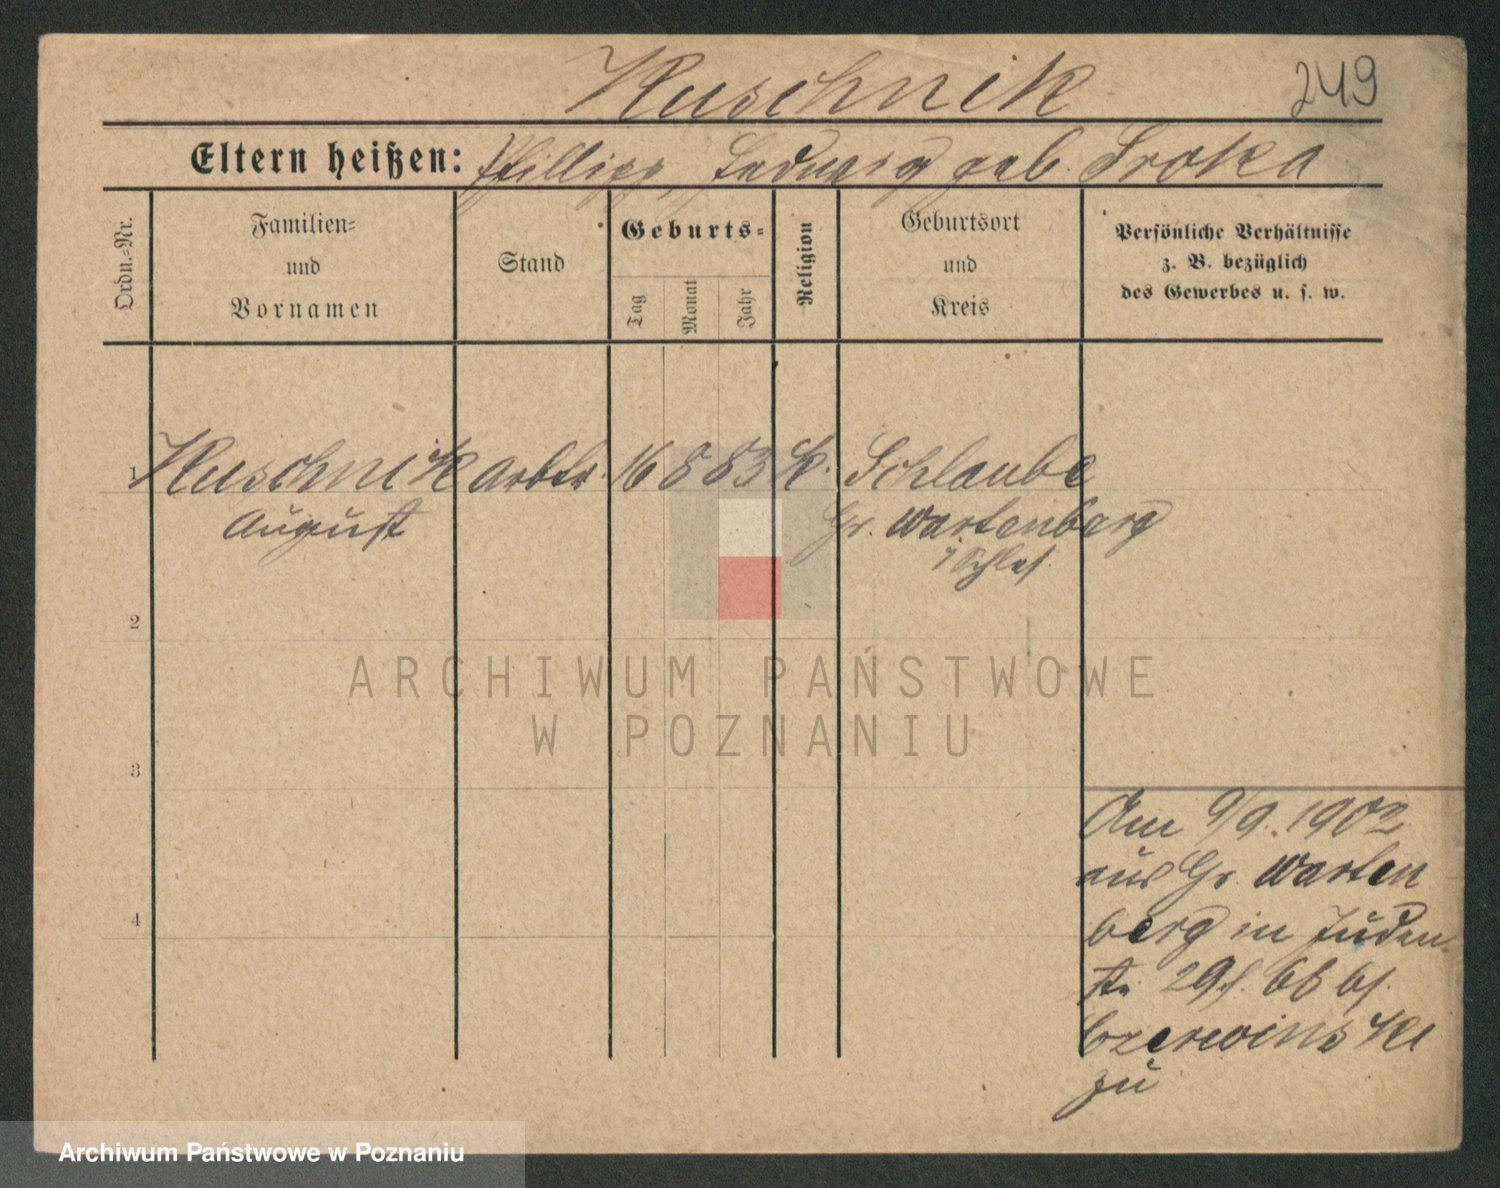 Kuschnik 249
Eltern heißen: Phillipp, Hedwig geb. Sroka
Ordn.-Nr.
Familien-
und
Vornamen
Stand
Geburts-
Tag
Monat
Jahr
Religion
Geburtsort
und
Kreis
Persönliche Verhältnisse
z. B. bezüglich
des Gewerbes u. s. w.
1 Kuschnik Arbtr. 16 8 83 k. Schlaube
August Gr. Wartenberg
i/Schles.
2
3
4
Am 9/9. 1902
aus Gr. Warten
berg in Juden-
str. 29 bei
Czerwinski
zu
ARCHIWUM PAŃSTWOWE
W POZNANIU
Archiwum Państwowe w Poznaniu